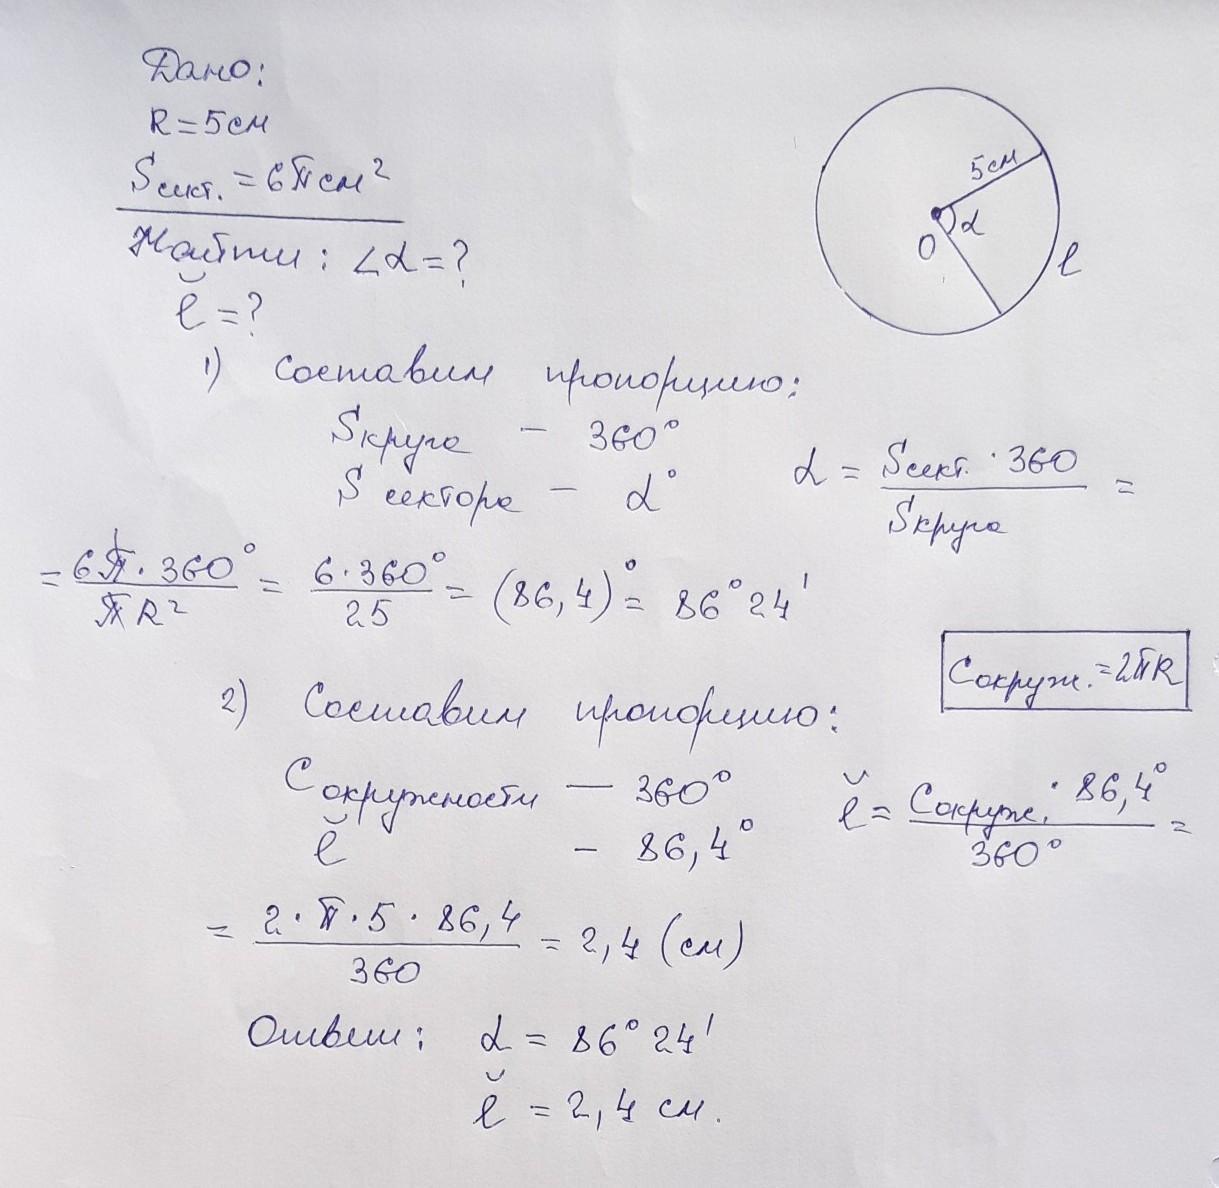 Дано:
R=5см
Sсект.=6πсм²
Найти: ∠α=?
ĕ=?
5см
α
O
ℓ
1) Составим пропорцию:
Sкруга - 360°
S сектора - α°
α = Sсект. · 360 / Sкруга =
= 6π · 360° / πR² = 6·360° / 25 = (86,4)° = 86°24'
Cокруж.=2πR
2) Составим пропорцию:
Cокружности — 360°
ℓ̆ - 86,4°
ℓ̆ = Cокруж. · 86,4° / 360° =
= 2·π·5·86,4 / 360 = 2,4 (см)
Ответ: α = 86°24'
ℓ̆ = 2,4 см.